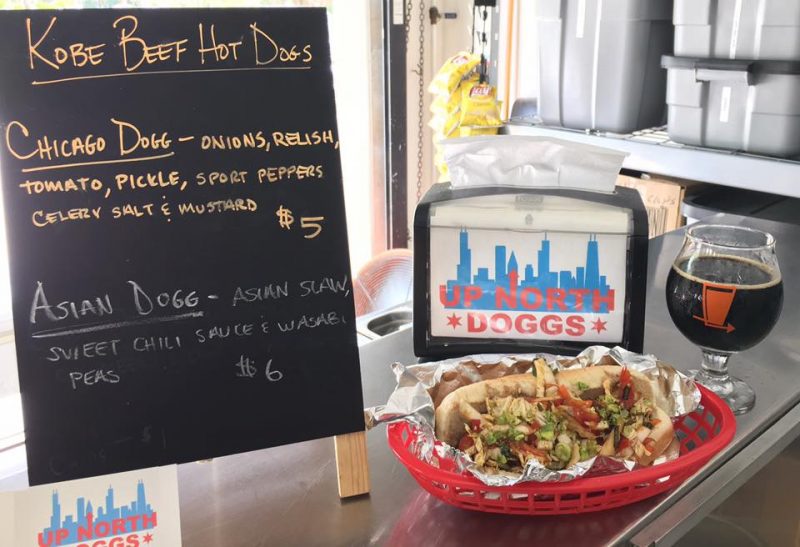 Kobe Beef Hot Dogs
Chicago Dogg - onions, relish,
tomato, pickle, sport peppers
celery salt & mustard $5
Asian Dogg - Asian slaw,
sweet chili sauce & wasabi
peas $6
Lay's
UP NORTH
DOGGS
UP NORTH
DOGGS